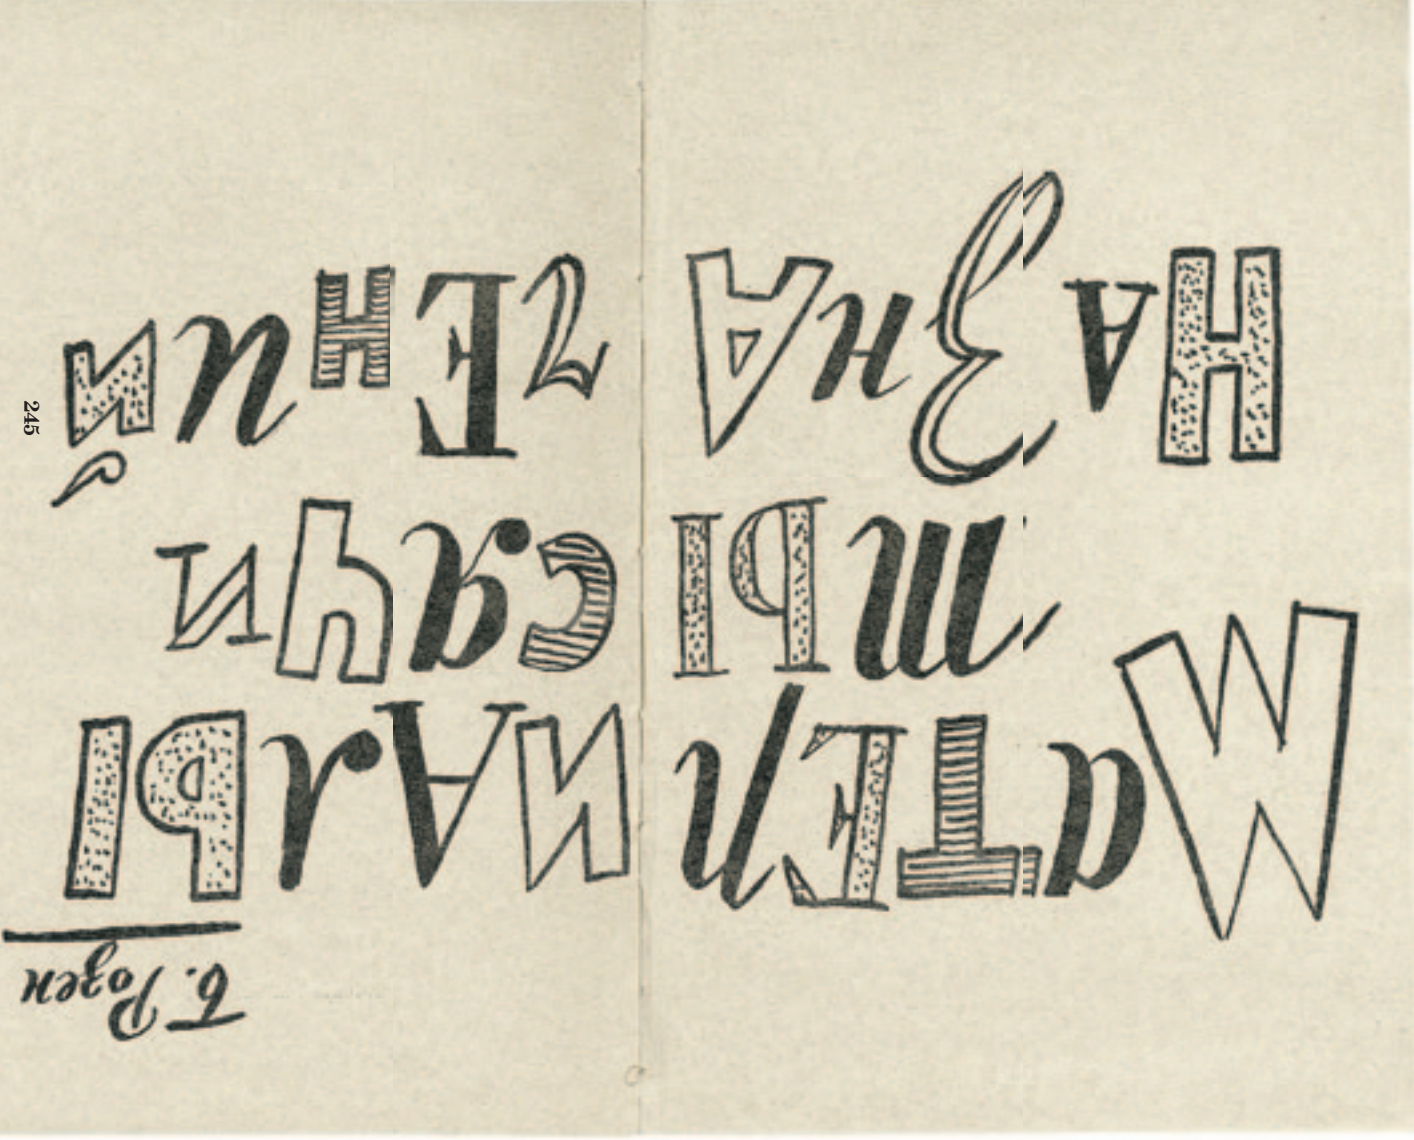 Б. Розен
МаТЕрИАлЫ
тЫсяЧИ
НАЗнАчЕНий
245